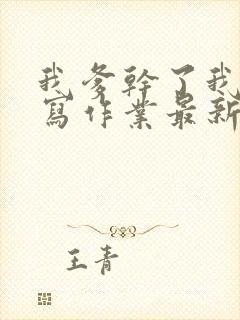 我爹幹了我
寫作業最新
王青